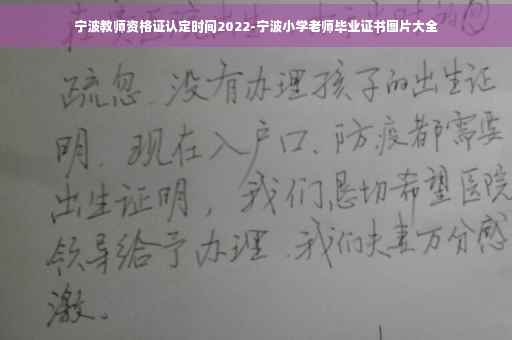 宁波教师资格证认定时间2022-宁波小学老师毕业证书图片大全
疏忽、没有办理孩子的出生证
明、现在入户口、防疫都需要
出生证明，我们恳切希望医院
领导给予办理、我们夫妻万分感
激。